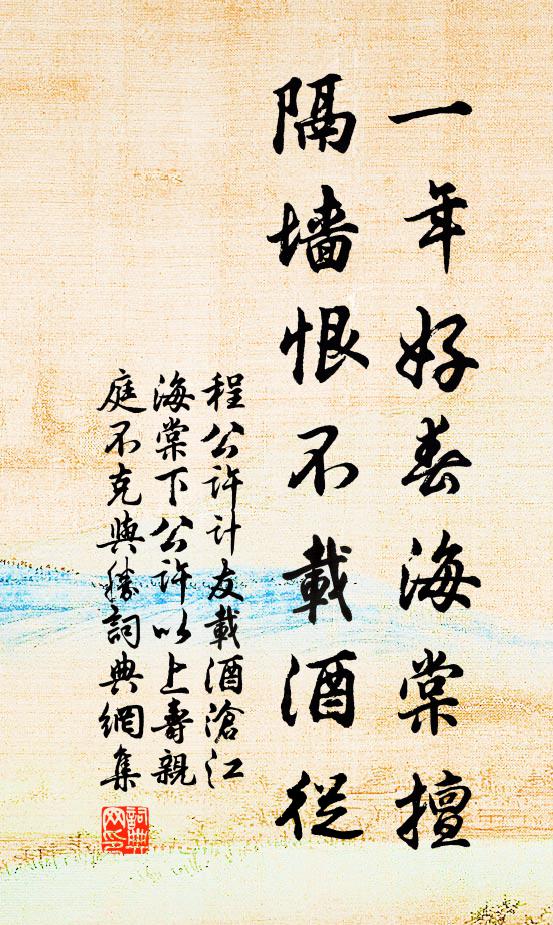 一年好春海棠擅
隔墙恨不載酒從
程公许计友載酒滄江
海棠下公许以上壽親
庭不克與勝詞典網集
詞典网印